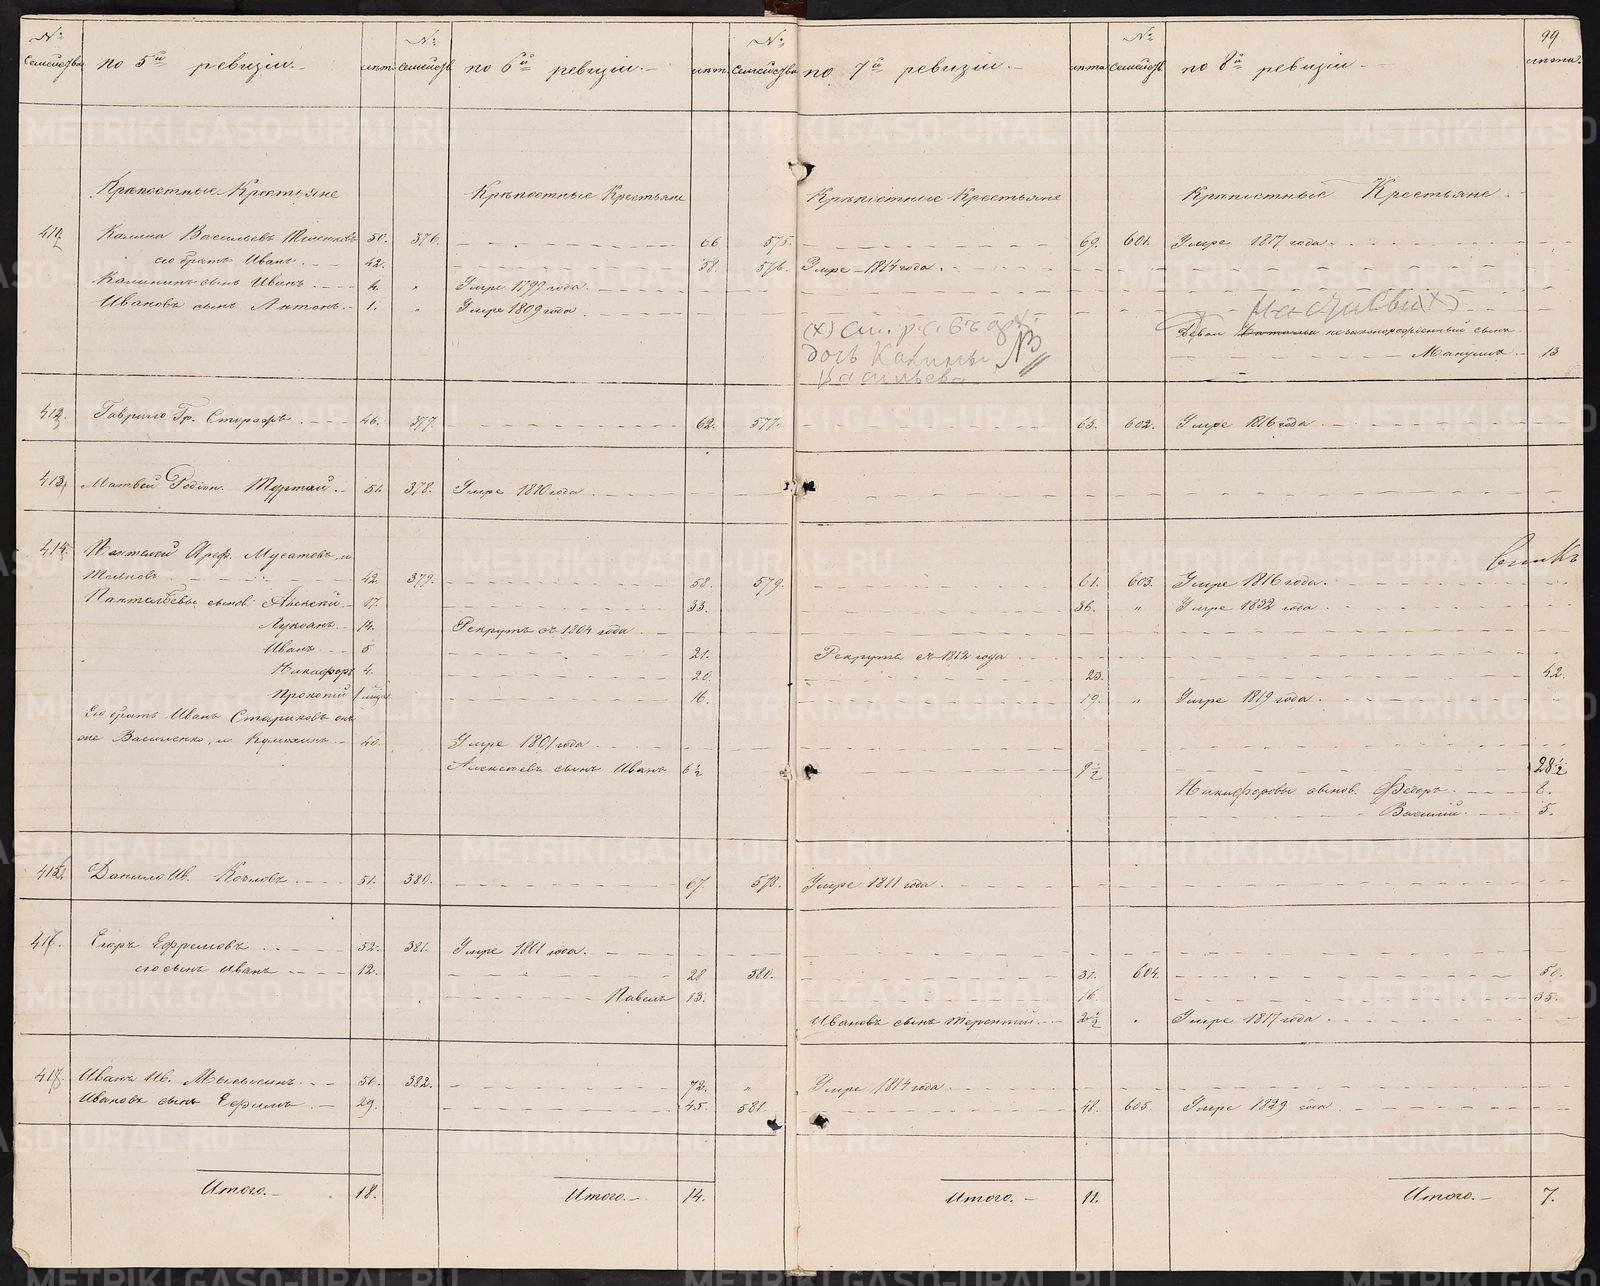 99
№ Семейства по 5й ревизіи.- лѣта. № Семейств по 6й ревизіи.- лѣта. № Семейства по 7й ревизіи.- лѣта № Семейств по 8й ревизіи.- лѣта.
Крѣпостные Крестьяне Крѣпостные Крестьяне Крѣпостные Крестьяне Крѣпостные Крестьяне.
Калина Васильевъ 50. 376. 66 575. 69. 601. Умре 1817 года.
его братъ Иванъ 42. 58. 576. Умре 1814 года.
Калининъ сынъ Иванъ 4. " Умре 1799 года.
Ивановъ сынъ Антонъ 1. " Умре 1809 года
(х)
дочь Калины NB
Васильева
незаконорожденный сынъ
13
412. Гаврило Гр. 46. 377. 62. 577. 65. 602. Умре 1816 года
413. Матвей Родіон. 51. 378. Умре 1810 года
414. Пантелей Ареф. Мусатовъ, и
42. 379. 58. 579. 61. 603. Умре 1816 года.
Пантелѣевы сынов. Алексей 17. 33. 36. " Умре 1832 года
14. Рекрутъ съ 1804 года
Иванъ 5 21. Рекрутъ съ 1812 года
Никифоръ 4. 20. 23. 42.
Прокопій 16. 19. " Умре 1819 года.
Его братъ Иванъ Стариковъ онъ
же Василенко, и 40. Умре 1801 года
Алексѣевъ сынъ Иванъ 6½ 9½ 28½
Никифоровы сынов. Федоръ 8.
Василій 5.
415. Данило Ив. Козловъ 51. 380. 67. 578. Умре 1811 года.
416. Егоръ Ефремовъ 52. 381. Умре 1801 года.
его сынъ Иванъ 12. 28 580. 31. 604. 50.
Павелъ 13. 16. 35.
Ивановъ сынъ Терентій. 2½ " Умре 1817 года
417. Иванъ Ив. 56. 382. 72. " Умре 1814 года
Ивановъ сынъ Ефимъ 29. 45. 581. 48. 605. Умре 1829 года
Итого.- 18. Итого.- 14. Итого.- 11. Итого.- 7.
METRIKI.GASO-URAL.RU